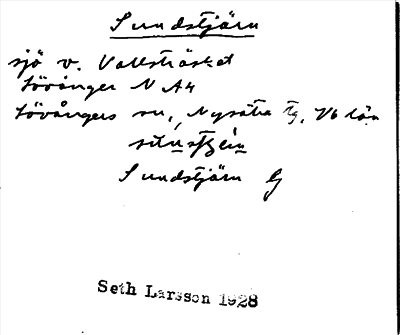 Sundstjärn
sjö v. Vallsträsket
Lövånger N A4
Lövångers sn, Nysätra tg, Vb län
Sundstjärn G
Seth Larsson 1928